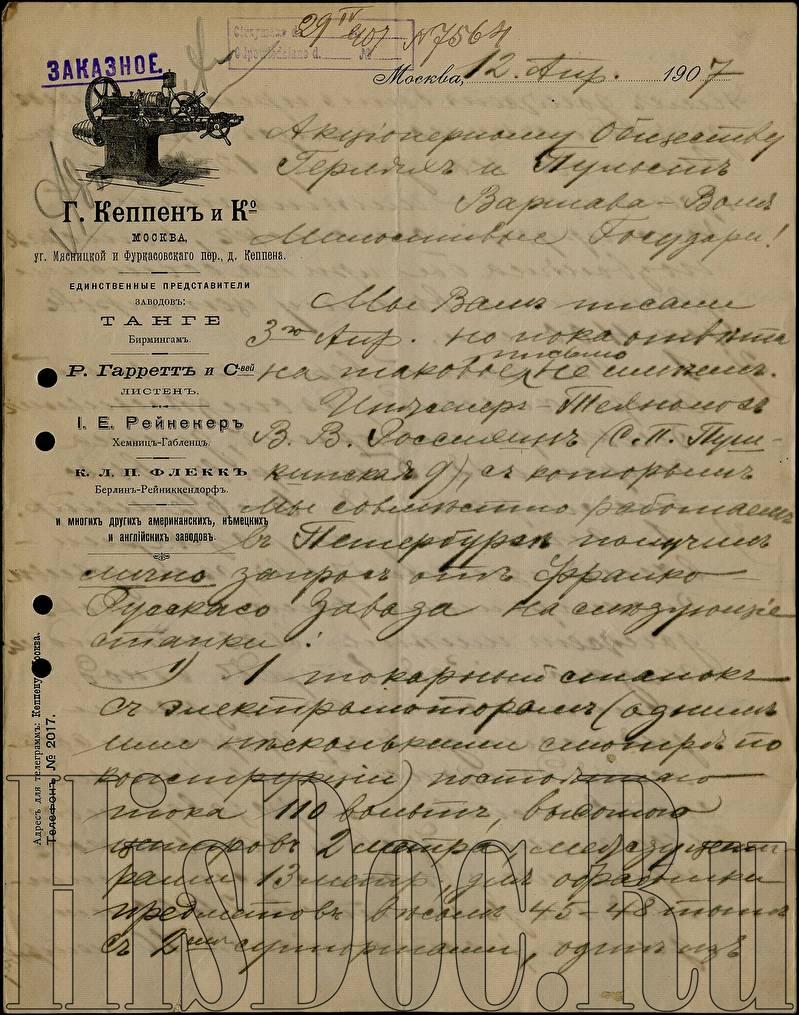 29 IV 907 N 7564
ЗАКАЗНОЕ.
Москва, 12. Апр. 1907
Г. Кеппенъ и Ко
МОСКВА,
уг. Мясницкой и Фуркасовского пер., д. Кеппена.
ЕДИНСТВЕННЫЕ ПРЕДСТАВИТЕЛИ
ЗАВОДОВЪ:
ТАНГЕ
Бирмингамъ.
Р. Гарреттъ и С-вей
ЛИСТЕНЪ.
І. Е. Рейнекеръ
Хемницъ-Габленцъ.
К. Л. П. ФЛЕККЪ
Берлинъ-Рейниккендорфъ.
и многихъ другихъ американскихъ, нѣмецкихъ
и англійскихъ заводовъ.
Адресъ для телеграммъ: Кеппену Москва.
Телефонъ № 2017.
Акціонерному Обществу
Герляхъ и Пульстъ
Варшава-Воля
Милостивые Государи!
Мы Вамъ писали
3го Апр. но пока отвѣта
на таковое письмо не имѣемъ.
Инженеръ-Технологъ
В. В. Россиянъ (С.П. Пуш-
кинская 9), съ которымъ
мы совмѣстно работаемъ
въ Петербургѣ получилъ
лично запросъ отъ Франко
Русскаго Завода на слѣдующіе
станки:
1) 1 токарный станокъ
съ электромоторомъ (однимъ
или нѣсколькими смотря по
конструкціи) постояннаго
тока 110 вольтъ, высотою
центровъ 2 метра между цент
рами 13 метр, для обрасотки
предметовъ вѣсомъ 45-48 тоннъ
съ 2мя суппортами, одинъ изъ
HisDoc.Ru